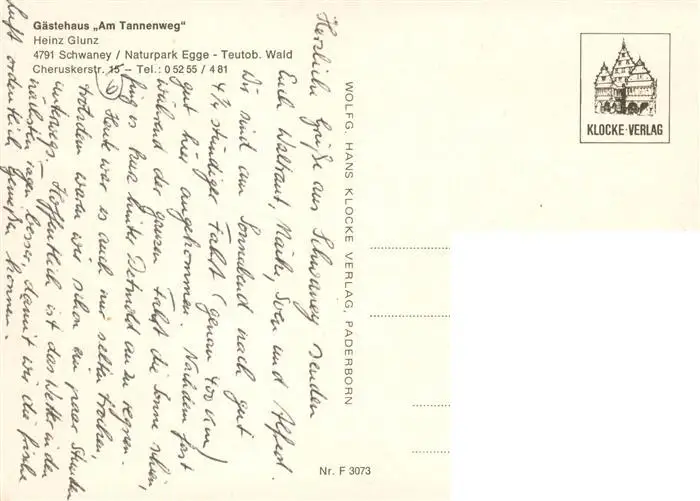 Gästehaus „Am Tannenweg"
Heinz Glunz
4791 Schwaney / Naturpark Egge - Teutob. Wald
Cheruskerstr. 15 – Tel.: 0 52 55 / 4 81
Herzliche Grüße aus Schwaney senden
Euch Waltraut, Sven und Alfred.
Wir sind am Sonnabend nach gut
4½ stündiger Fahrt (genau 400 km)
gut hier angekommen. Nachdem fast
während der ganzen Fahrt die Sonne schien,
fing es kurz hinter Detmold an zu regnen.
Heute war es auch nur selten trocken,
trotzdem waren wir schon ein paar Stunden
unterwegs. – Hoffentlich ist das Wetter in den
nächsten Tagen besser, damit wir die frische
Luft ordentlich genießen können.
WOLFG. HANS KLOCKE VERLAG, PADERBORN
KLOCKE·VERLAG
Nr. F 3073